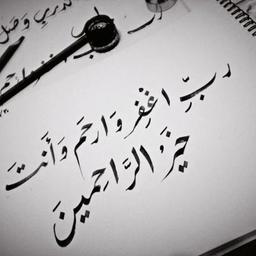 رَبِّ اغْفِر وَارحَم وَأَنتَ
خَيرُ الرَّاحِمِينَ